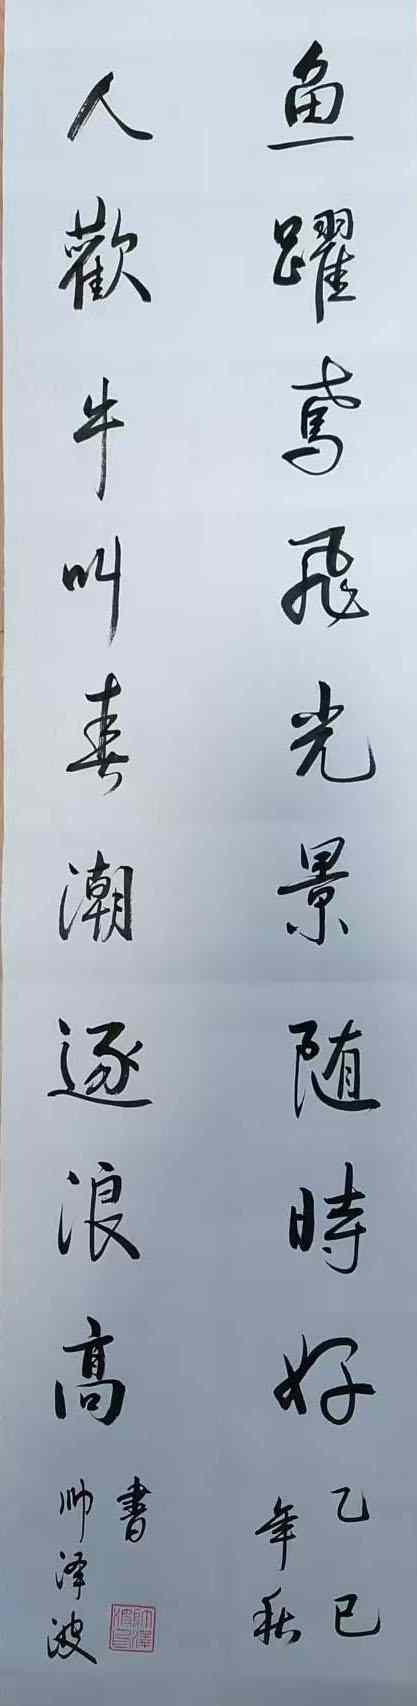 鱼躍鳶飛光景随時好
乙巳
年秋
人歡牛叫春潮逐浪高
書
帅泽波